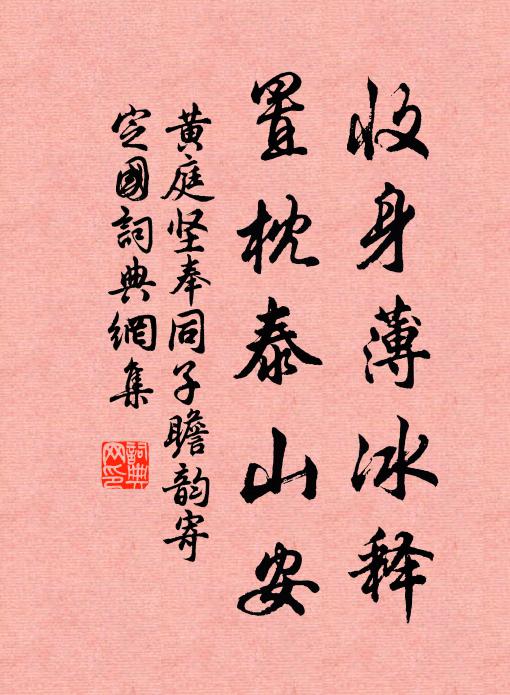 收身薄冰释
置枕泰山安
黄庭坚奉同子瞻韵寄
定國詞典網集
詞典网印